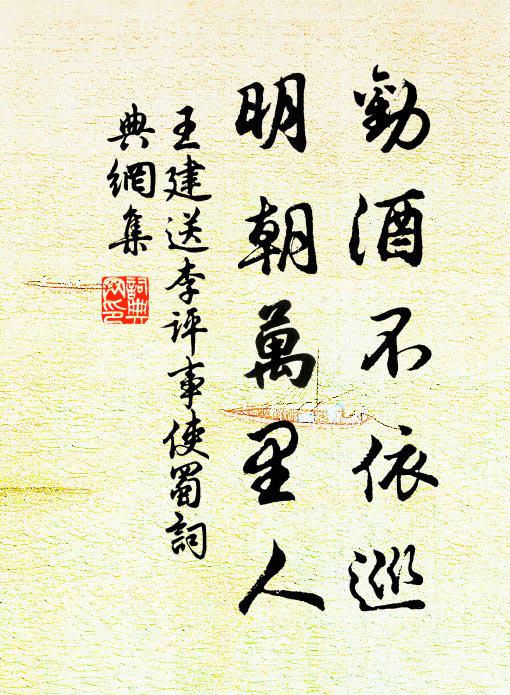 勸酒不依巡
明朝萬里人
王建送李评事使蜀詞
典網集
詞典
网印